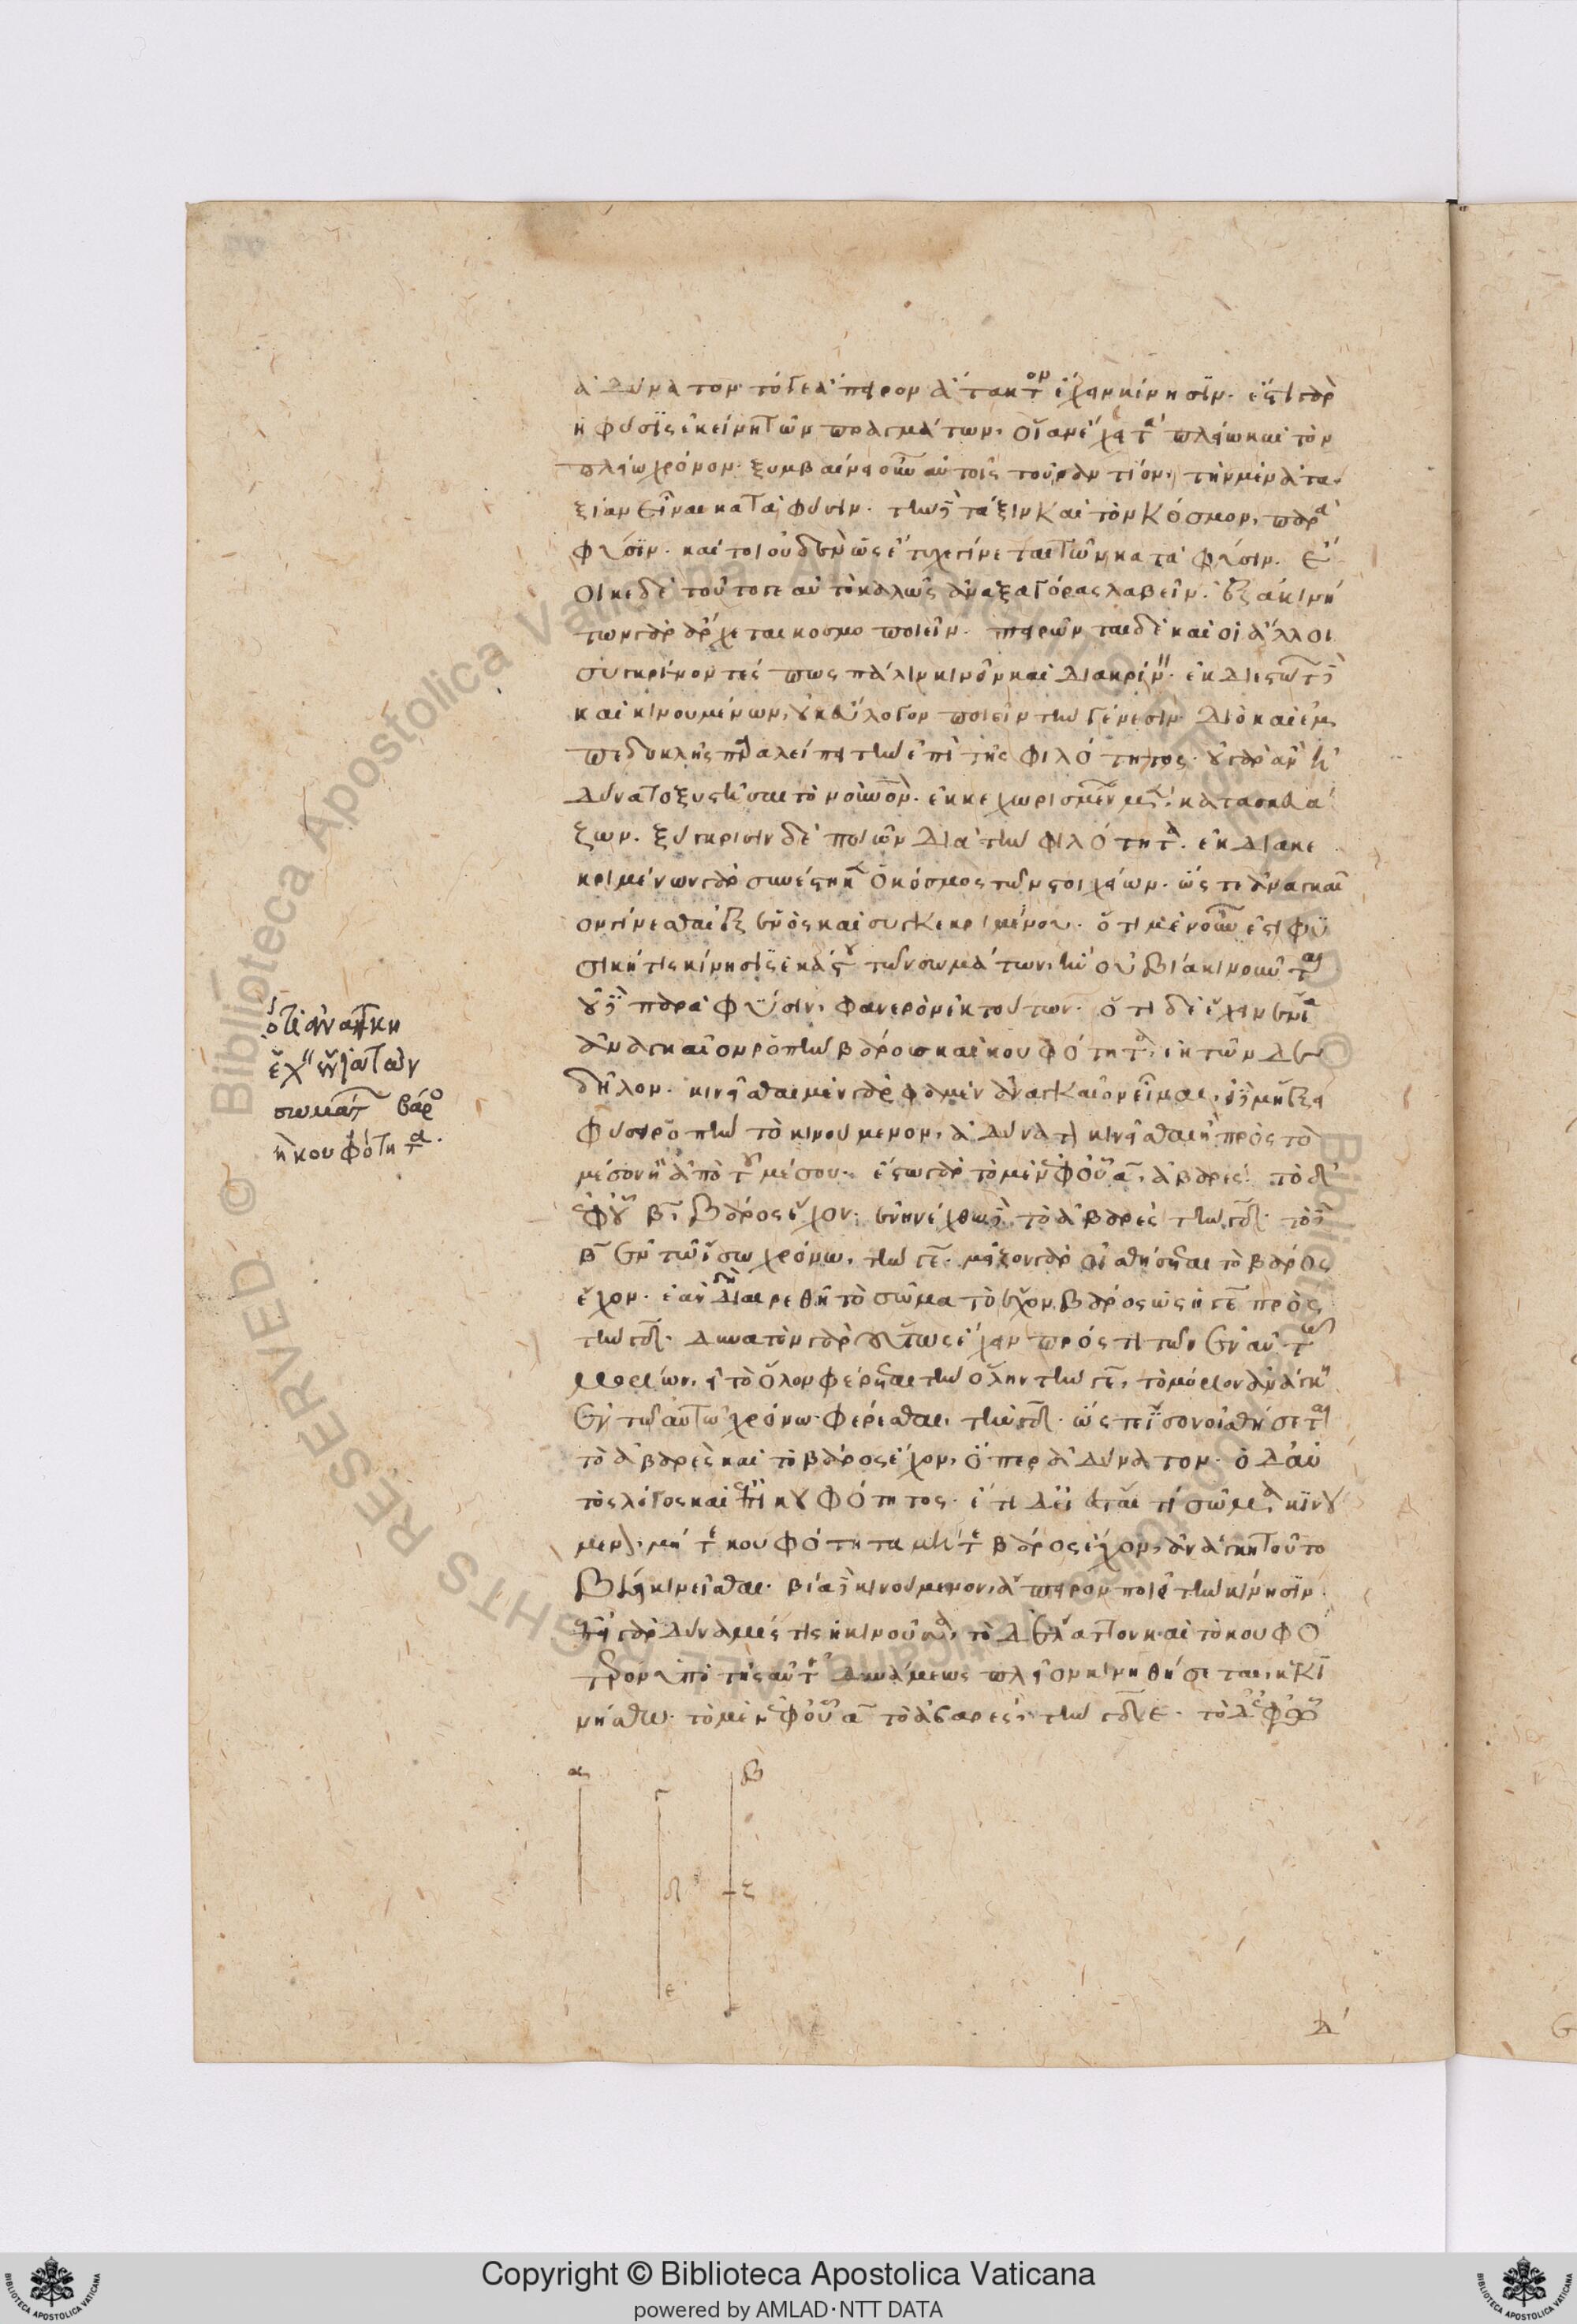 ἀδύνατον τό γε ἄπειρον ἄτακτον ἔχειν κίνησιν. ἔστι γὰρ
ἡ φύσις ἐκείνη τῶν πραγμάτων, οἵαν ἔχει τὰ πλείω καὶ τὸν
πλείω χρόνον. ξυμβαίνει οὖν αὐτοῖς τοὐναντίον, τὴν μὲν ἀτα
ξίαν εἶναι κατὰ φύσιν. τὴν δὲ τάξιν καὶ τὸν κόσμον, παρὰ
φύσιν. καί τοι οὐδὲν ὡς ἔτυχε γίνεται τῶν κατὰ φύσιν. ἔ
οικε δὲ τοῦτό γε αὐτὸ καλῶς ἀναξαγόρας λαβεῖν. ἐξ ἀκινή
των γὰρ ἄρχεται κοσμοποιεῖν. πειρῶνται δὲ καὶ οἱ ἄλλοι
συγκρίνοντές πως πάλιν κινεῖν καὶ διακρίνειν. ἐκ διεστώτων δὲ
καὶ κινουμένων, οὐκ εὔλογον ποιεῖν τὴν γένεσιν. διὸ καὶ ἐμ
πεδοκλῆς παραλείπει τὴν ἐπὶ τῆς φιλότητος. οὐ γὰρ ἂν ἠ
δύνατο ξυστῆσαι τὸν οὐρανὸν. ἐκ κεχωρισμένων μὲν κατασκευά
ζων. ξύγκρισιν δὲ ποιῶν διὰ τὴν φιλότητα. ἐκ διακε
κριμένων γὰρ συνέστηκεν ὁ κόσμος τῶν στοιχείων. ὥστε ἀναγκαῖ
ον γίνεσθαι ἐξ ἑνὸς καὶ συγκεκριμένου. ὅτι μὲν οὖν ἐστι φυ
σική τις κίνησις ἑκάστου τῶν σωμάτων, ἣν οὐ βίᾳ κινοῦνται
οὐδὲ παρὰ φύσιν, φανερὸν ἐκ τούτων. ὅτι δὲ ἔχειν ἔνια
ἀναγκαῖον ῥοπὴν βάρους καὶ κουφότητα, ἐκ τῶν δε
δῆλον. κινεῖσθαι μὲν γὰρ φαμὲν ἀναγκαῖον εἶναι, εἰ δὲ μὴ ἕξει
φύσει ῥοπὴν τὸ κινούμενον, ἀδύνατον κινεῖσθαι ἢ πρὸς τὸ
μέσον ἢ ἀπὸ τοῦ μέσου. ἔστω γὰρ τὸ μὲν ἐφ' οὗ α, ἀβαρές. τὸ δ'
ἐφ' οὗ β, βάρος ἔχον. ἐνηνέχθω δὲ τὸ ἀβαρὲς τὴν γδ. τὸ δὲ
β ἐν τῷ ἴσῳ χρόνῳ, τὴν γε. μεῖζον γὰρ οἰσθήσεται τὸ βάρος
ἔχον. ἐὰν δὴ διαιρεθῇ τὸ σῶμα τὸ ἔχον βάρος ὡς ἡ γε πρὸς
τὴν γδ. δυνατὸν γὰρ οὕτως ἔχειν πρός τι τῶν ἐν αὐτῷ
μορίων, εἰ τὸ ὅλον φέρεται τὴν ὅλην τὴν γε, τὸ μόριον ἀνάγκη
ἐν τῷ αὐτῷ χρόνῳ φέρεσθαι τὴν γδ. ὥστε ἴσον οἰσθήσεται
τὸ ἀβαρὲς καὶ τὸ βάρος ἔχον, ὅπερ ἀδύνατον. ὁ δ' αὐ
τὸς λόγος καὶ ἐπὶ κουφότητος. ἔτι δ' εἰ ἔσται τι σῶμα κινού
μενον, μήτε κουφότητα μήτε βάρος ἔχον, ἀνάγκη τοῦτο
βίᾳ κινεῖσθαι. βίᾳ δὲ κινούμενον, ἄπειρον ποιεῖ τὴν κίνησιν.
ἐπεὶ γὰρ δύναμίς τις ἡ κινοῦσα, τὸ δ' ἔλαττον καὶ τὸ κουφό
τερον ὑπὸ τῆς αὐτῆς δυνάμεως πλεῖον κινηθήσεται, κεκι
νήσθω τὸ μὲν ἐφ' οὗ α τὸ ἀβαρές, τὴν γε. τὸ δ' ἐφ' οὗ
ὅτι ἀνάγκη
ἔχειν ἔνια τῶν
σωμάτων βάρος
ἢ κουφότητα.
α γ β
δ ζ
ε
Δ
Copyright © Biblioteca Apostolica Vaticana
powered by AMLAD·NTT DATA